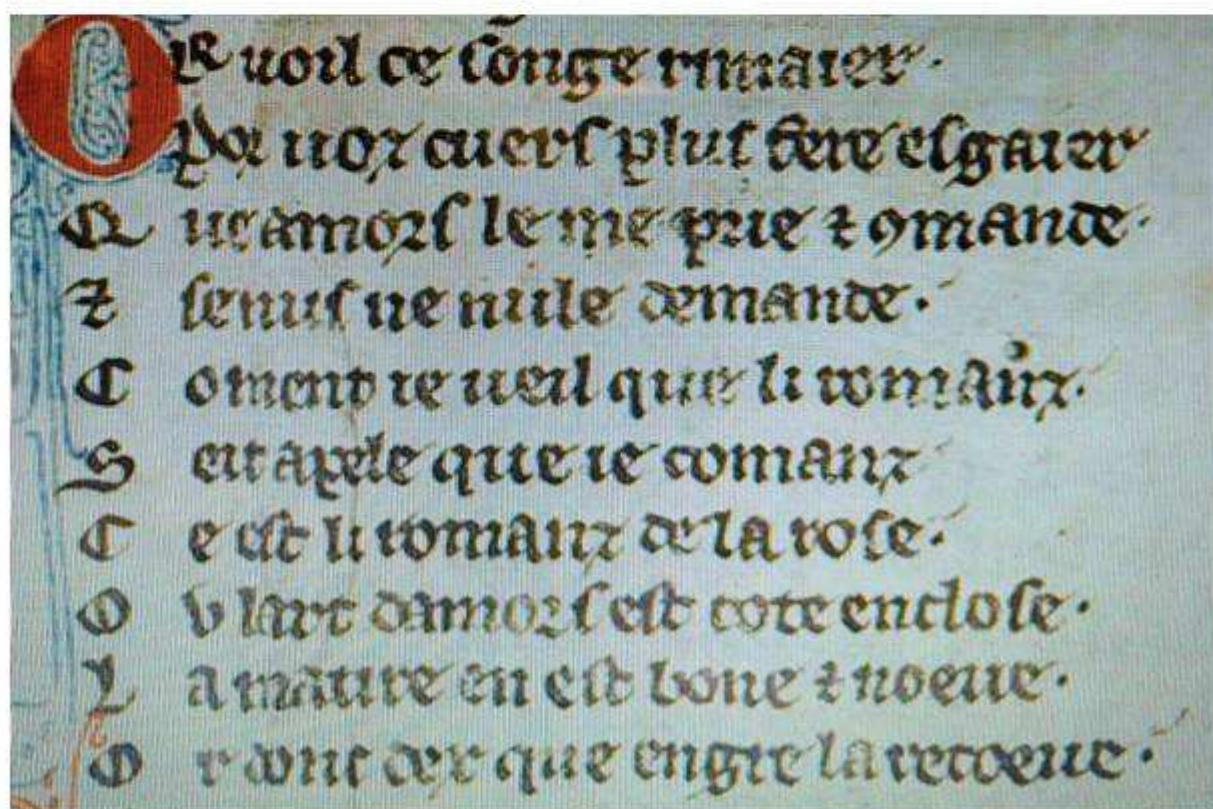 OR uoil ce songe rimaier.
Por uoz cuers plus fere esgaier
Que amors le me prie ⁊ ꝯmande.
⁊ senus ne nule demande.
Coment ie ueil que li romanz.
Seit apele que ie comanz
Ce est li romanz de la rose.
Ov lart damors est tote enclose.
La matire en est bone ⁊ noeue.
Or dex que la recoeue.